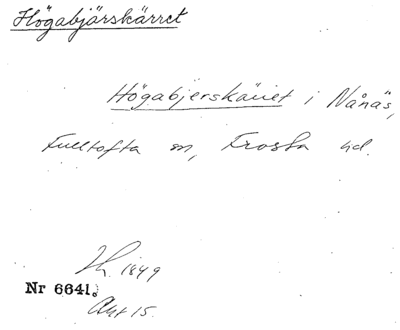 Högabjärskärret
Högabjerskäret i Nånäs,
Fulltofta sn, Frosta hd.
Lh. 1849
Nr 6641.
Akt 15.